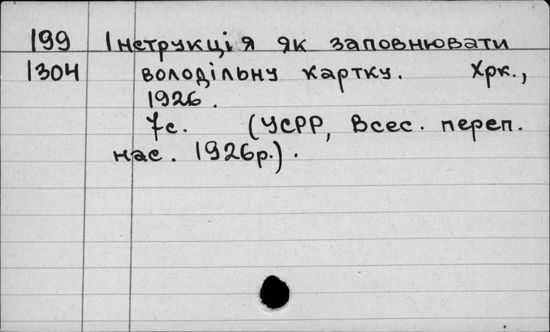 199 Інструкція як заповнювати
1304 володільну картку. Хрк.,
1926.
7с. (УСРР, Всес. переп.
нас. 1926р.).